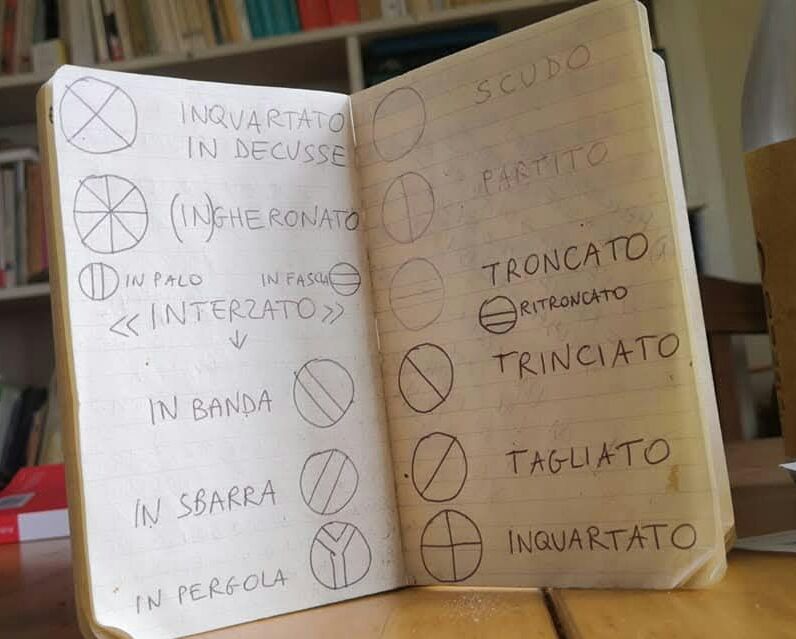 INQUARTATO
IN DECUSSE
(IN)GHERONATO
IN PALO IN FASCIA
<< INTERZATO >>
IN BANDA
IN SBARRA
IN PERGOLA
SCUDO
PARTITO
TRONCATO
RITRONCATO
TRINCIATO
TAGLIATO
INQUARTATO